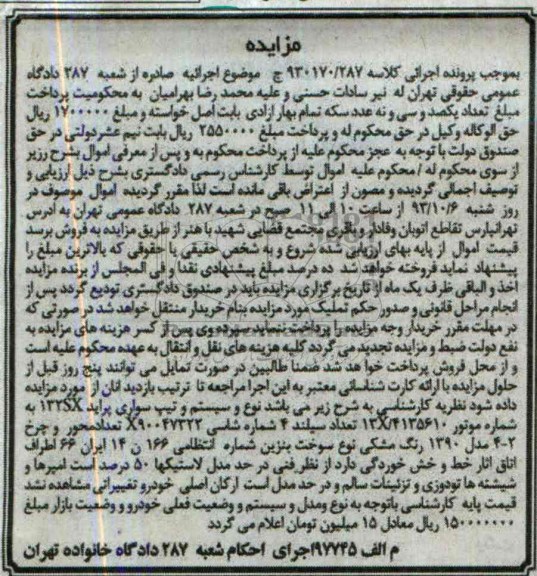 مزایده
بموجب پرونده اجرائی کلاسه ۹۳۰۱۷۰/۲۸۷ ج موضوع اجرائیه صادره از شعبه ۲۸۷ دادگاه
عمومی حقوقی تهران له نیر سادات حسنی و علیه محمد رضا بهرامیان به محکومیت پرداخت
مبلغ تعداد یکصد و سی و نه عدد سکه تمام بهار ازادی بابت اصل خواسته و مبلغ ۱۷۰۰۰۰۰ ریال
حق الوکاله وکیل در حق محکوم له و پرداخت مبلغ ۲۵۵۰۰۰۰ ریال بابت نیم عشردولتی در حق
صندوق دولت با توجه به عجز محکوم علیه از پرداخت محکوم به و پس از معرفی اموال بشرح رزیر
از سوی محکوم له / محکوم علیه اموال توسط کارشناس رسمی دادگستری بشرح ذیل ارزیابی و
توصیف اجمالی گردیده و مصون از اعتراض باقی مانده است لذا مقرر گردیده اموال موصوف در
روز شنبه ۹۳/۱۰/۶ از ساعت ۱۰ الی ۱۱ صبح در شعبه ۲۸۷ دادگاه عمومی تهران به ادرس
تهرانپارس تقاطع اتوبان وفادار و باقری مجتمع قضایی شهید با هنر از طریق مزایده به فروش برسد
قیمت اموال از پایه بهای ارزیابی شده شروع و به شخص حقیقی یا حقوقی که بالاترین مبلغ را
پیشنهاد نماید فروخته خواهد شد ده درصد مبلغ پیشنهادی نقدا و فی المجلس از برنده مزایده
اخذ و الباقی ظرف یک ماه از تاریخ برگزاری مزایده باید در صندوق دادگستری تودیع گردد پس از
انجام مراحل قانونی و صدور حکم تملیک مورد مزایده بنام خریدار منتقل خواهد شد در صورتی که
در مهلت مقرر خریدار وجه مزایده را پرداخت ننماید سپرده وی پس از کسر هزینه های مزایده به
نفع دولت ضبط و مزایده تجدید می گردد کلیه هزینه های نقل و انتقال به عهده محکوم علیه است
و از محل فروش پرداخت خوا هد شد ضمنا طالبین در صورت تمایل می توانند پنج روز قبل از
حلول مزایده با ارائه کارت شناسائی معتبر به این اجرا مراجعه تا ترتیب بازدید انان از مورد مزایده
داده شود نظریه کارشناسی به شرح زیر می باشد نوع و سیستم و تیپ سواری پراید ۱۳۲SX به
شماره موتور ۱۳X/۴۱۳۵۶۱۰ تعداد سیلند ۴ شماره شاسی X۹۰۰۴۷۳۲۲ تعدادمحور و چرخ
۴-۲ مدل ۱۳۹۰ رنگ مشکی نوع سوخت بنزین شماره انتظامی ۱۶۶ ن ۱۴ ایران ۶۶ اطراف
اتاق اثار خط و خش خوردگی دارد از نظر فنی در حد مدل لاستیکها ۵۰ درصد است امپرها و
شیشته ها تودوزی و تزئینات سالم و در حد مدل است ارکان اصلی خودرو تغییراتی مشاهده نشد
قیمت پایه کارشناسی باتوجه به نوع ومدل و سیستم و وضعیت فعلی خودرو و وضعیت بازار مبلغ
۱۵۰۰۰۰۰۰۰ ریال معادل ۱۵ میلیون تومان اعلام می گردد
م الف ۹۷۷۴۵اجرای احکام شعبه ۲۸۷ دادگاه خانواده تهران